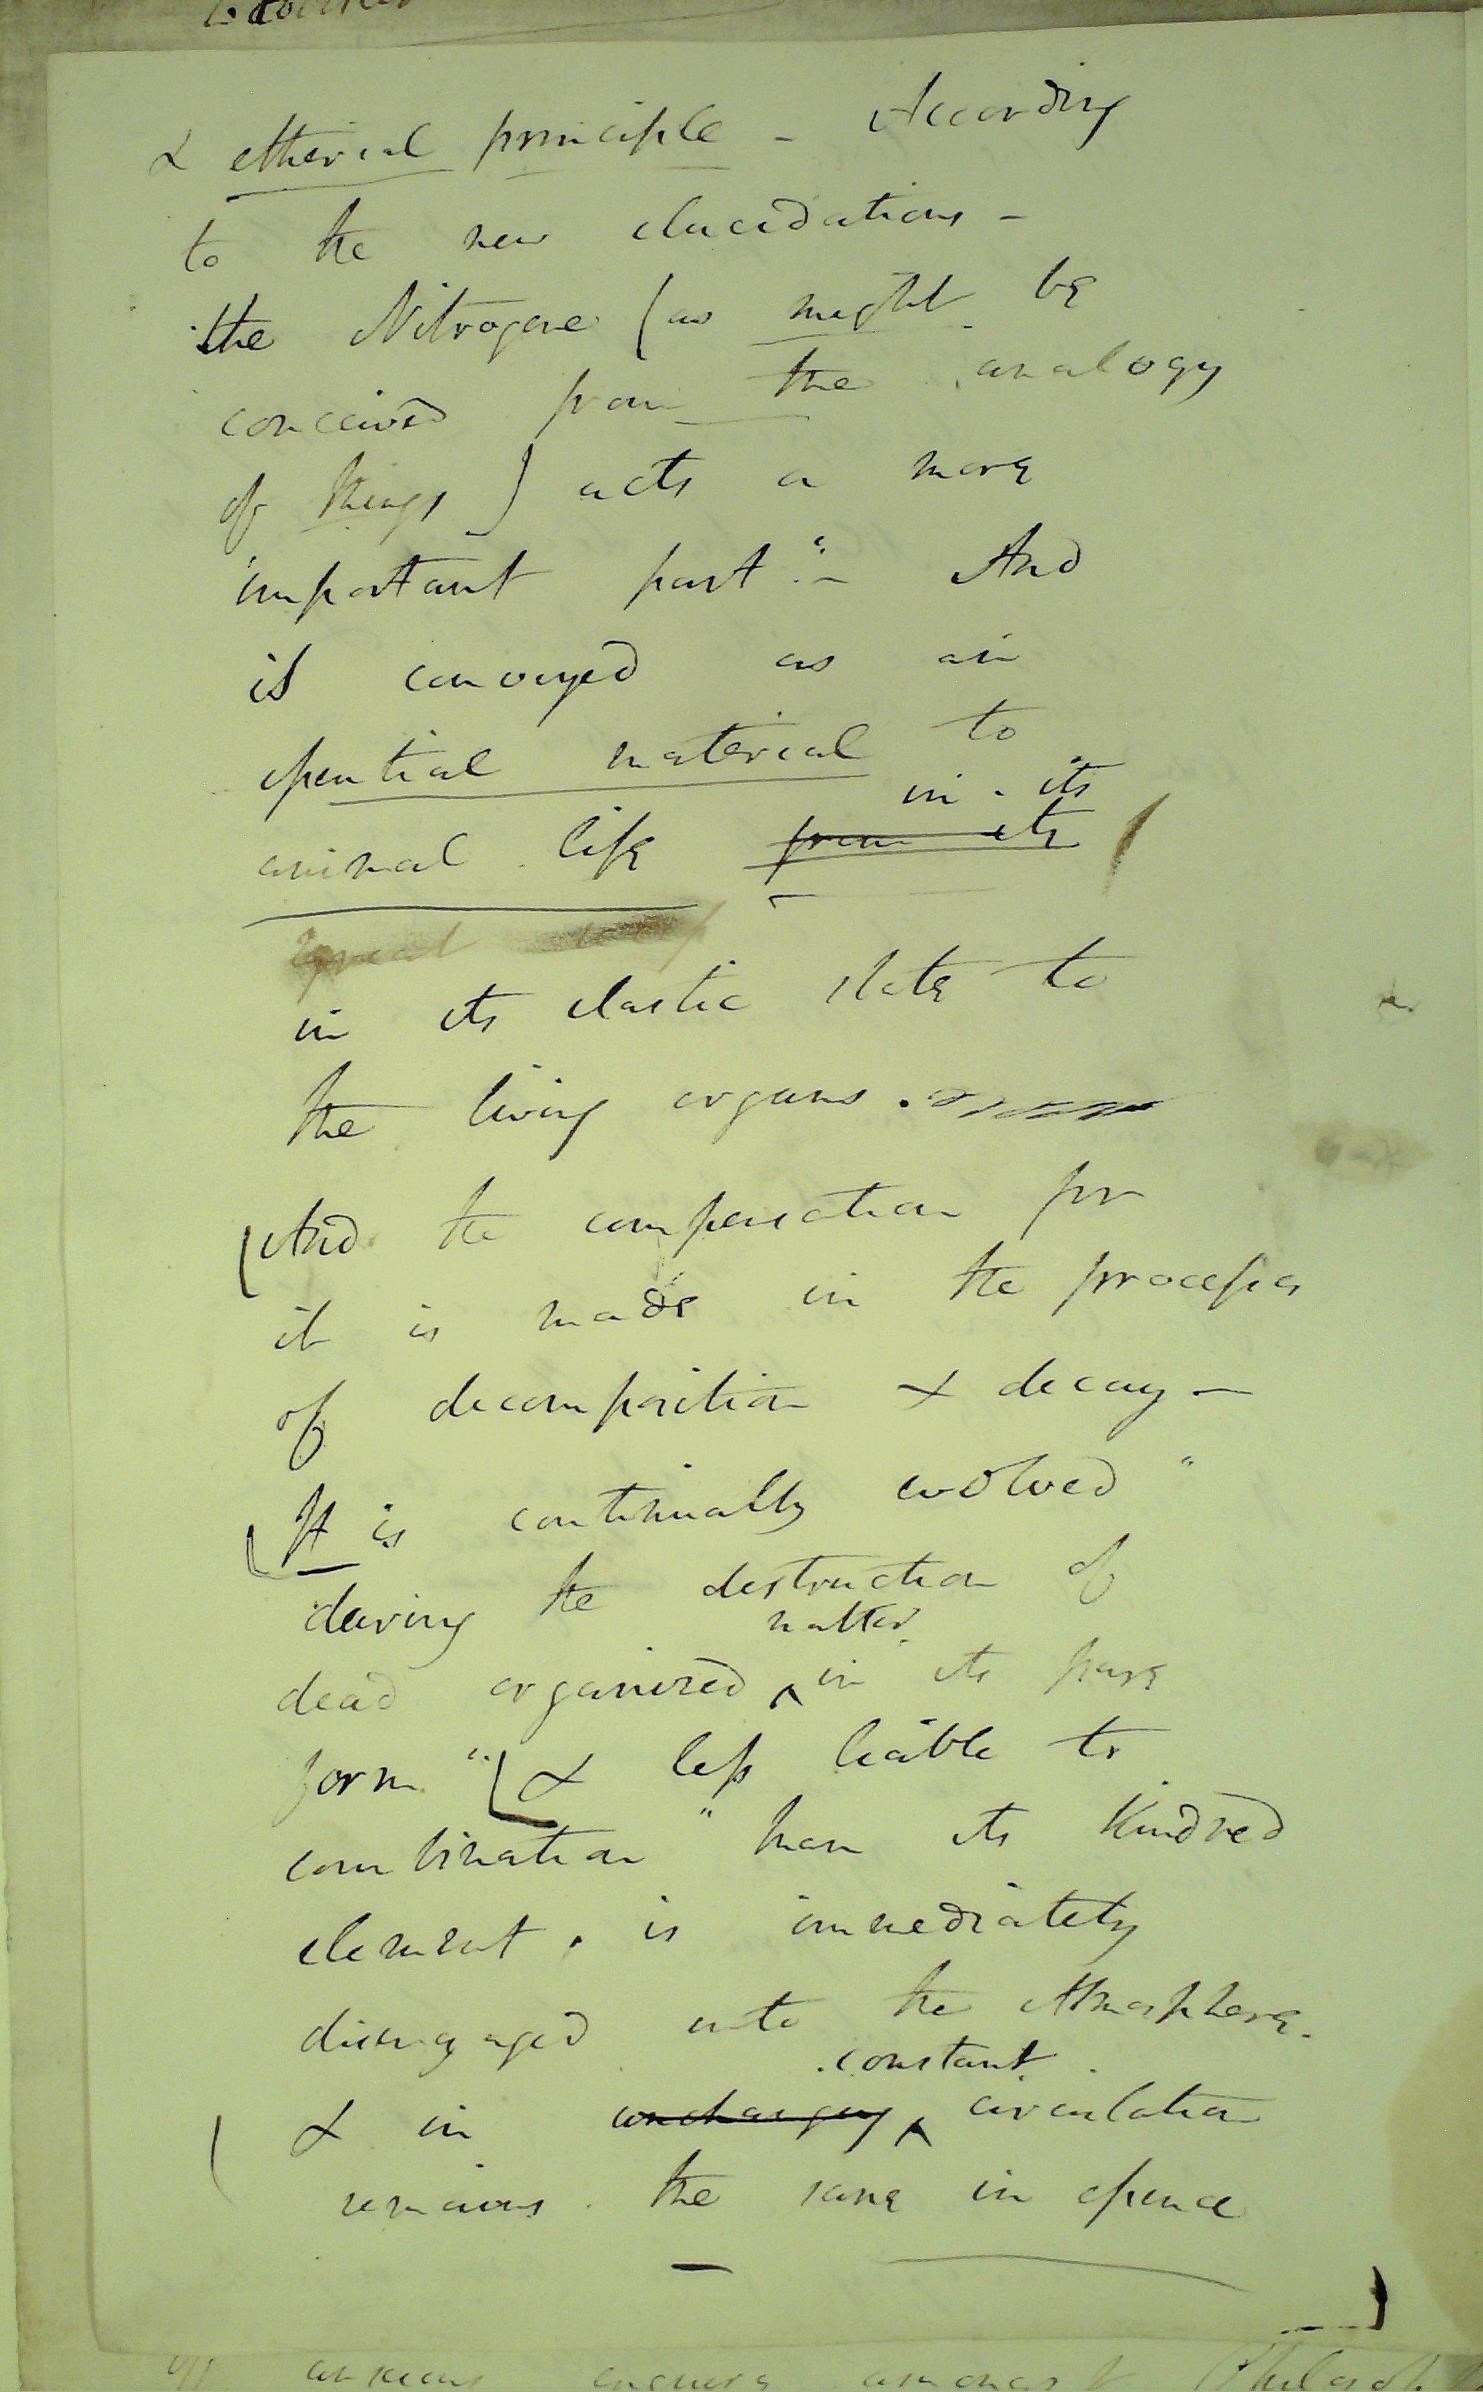 & etherial principle - According
to the new elucidations -
the Nitrogene (as might be
conceived from the analogy
of things) acts a more
important part" - And
is conveyed as an
essential material to
in its
animal life from its
in its elastic state to
the living organs.
(And the compensation for
it is made in the processes
of decomposition & decay -
It is continually evolved "
during the destruction of
matter
dead organized ^ in its pure
form " & less liable to
combination " than its kindred
element, is immediately
disengaged into the Atmosphere.
constant
& in unchanging ^ circulation
remains the same in essence
anxious enquiry amongst